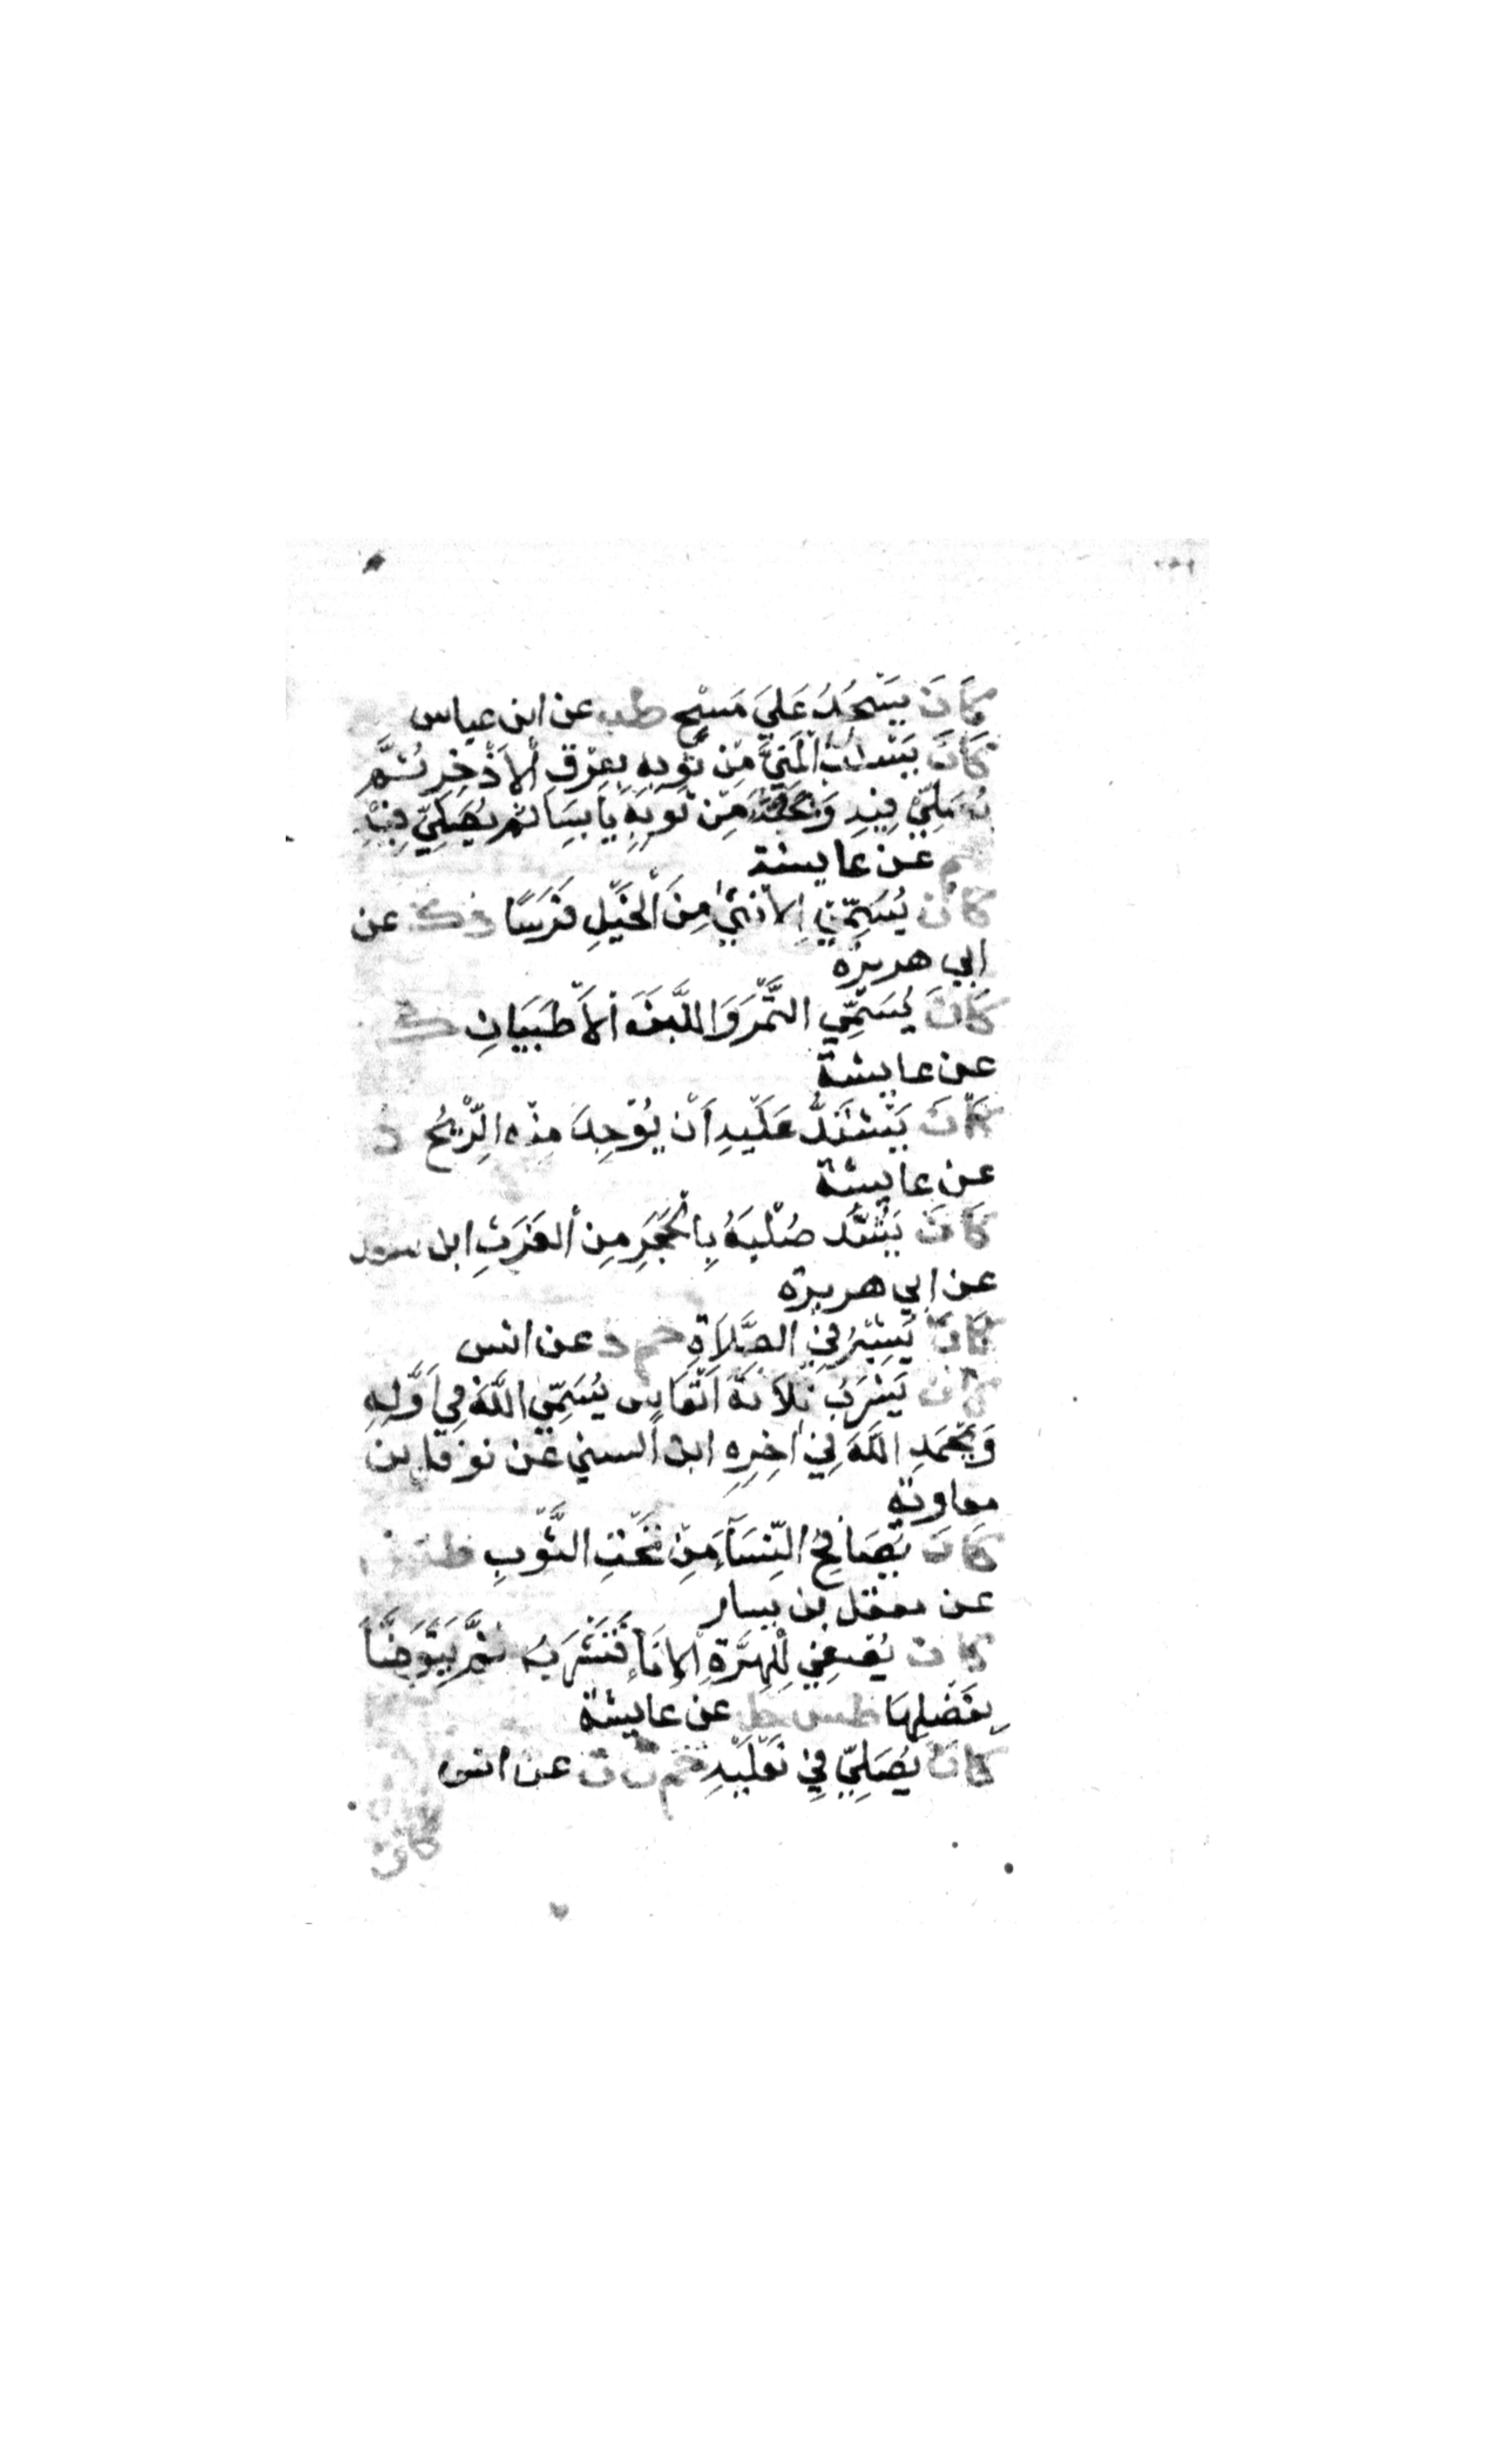 كَانَ يَسْجُدُ عَلَيَ مَسْحٍ طب عن ابن عباس
كَانَ يَسْلُتُ الْمَنِيَّ مِنْ ثَوبِهِ بِعِرْقِ الْاَذْخِرِ ثُمَّ
يُصَلِّيْ فِيْهِ وَيَحُتُّهُ مِنْ ثَوبِهِ يَابِسَا ثُم يُصَلِّيَ فِيْهِ
حم عن عايشة
كَانَ يُسَمِّي الاُنْثَيْ مِنَ الْخَيْلِ فَرَسًا د ك عن
ابي هريرة
كَانَ يُسَمِّي التَّمْرَ وَاللَّبَنَ الْاَطْيَبَانِ ك
عن عايشة
كَانَ يَشْتَدُّ عَلَيْهِ اَنْ يُوْجِدَ مِنْهُ الرِّيْحُ د
عن عايشة
كَانَ يَشُدُّ صُلْبَهُ بِالْحَجَرِ مِنَ الغَرَثِ ابن سعد
عن ابي هريرة
كَانَ يُشِيْرُ فِي الصَّلَاةِ حم د عن انس
كَانَ يَشْرَبُ ثَلَاثَةَ اَنْفَاسٍ يُسَمِّي اللَّهَ فِي اَوَّلِهِ
وَيَحْمَدِ اللَّهَ فِي اٰخِرِهِ ابن السني عن نوفل بن
معاوية
كَانَ يُصَافِحُ النِّسَآءَ مِنْ تَحْتِ الثَّوْبِ طس
عن معقل بن يسار
كان يُصْغِيْ لِلْهِرَّةِ الْاِنَاءَ فَتَشْرَبُ ثُمَّ يَتَوَضَّأُ
بِفَضْلِهَا طس حل عن عايشة
كَانَ يُصَلِّيَ فِيْ نَعْلَيْهِ حم ق ت عن انس
كان